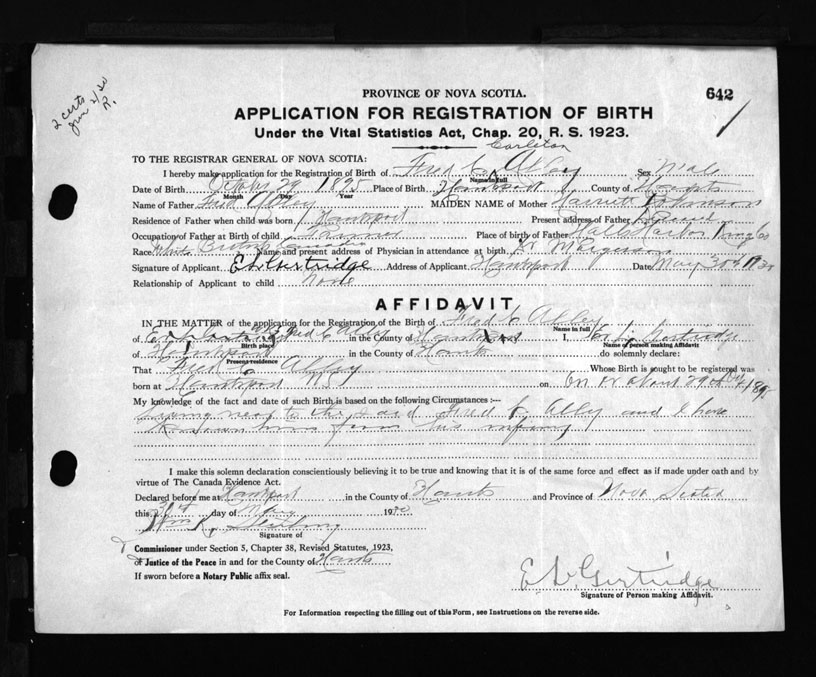 2 certs
June 2/30
R.
PROVINCE OF NOVA SCOTIA.
642
APPLICATION FOR REGISTRATION OF BIRTH
Under the Vital Statistics Act, Chap. 20, R. S. 1923.
Carleton
TO THE REGISTRAR GENERAL OF NOVA SCOTIA:
I hereby make application for the Registration of Birth of Fred C Alley Sex Male
Name in full
Date of Birth October 29 1895 Place of Birth Hantsport County of Hants
Month Day Year
Name of Father Fred Alley MAIDEN NAME of Mother Harriett Johnson
Residence of Father when child was born Hantsport Present address of Father
Occupation of Father at Birth of child Place of birth of Father Halls Harbor
Race White British Canadian Name and present address of Physician in attendance at birth Dr Margeson
Signature of Applicant E D Gertridge Address of Applicant Hantsport Date May 30th 1930
Relationship of Applicant to child None
AFFIDAVIT
IN THE MATTER of the application for the Registration of the Birth of Fred C Alley
Name in full
of in the County of I, Gertridge
Birth place Name of person making Affidavit
of Hantsport in the County of Hants do solemnly declare:
Present residence
That Fred C Alley Whose Birth is sought to be registered was
born at Hantsport N.S. on On or about 29th Oct 1895
My knowledge of the fact and date of such Birth is based on the following Circumstances :—
living near to the said Fred C Alley and I have
known him from his infancy
I make this solemn declaration conscientiously believing it to be true and knowing that it is of the same force and effect as if made under oath and by
virtue of The Canada Evidence Act.
Declared before me at Hantsport in the County of Hants and Province of Nova Scotia
this day of May 1930
Wm R
Signature of
Commissioner under Section 5, Chapter 38, Revised Statutes, 1923,
of Justice of the Peace in and for the County of Hants
If sworn before a Notary Public affix seal.
E. D. Gertridge
Signature of Person making Affidavit.
For Information respecting the filling out of this Form, see Instructions on the reverse side.